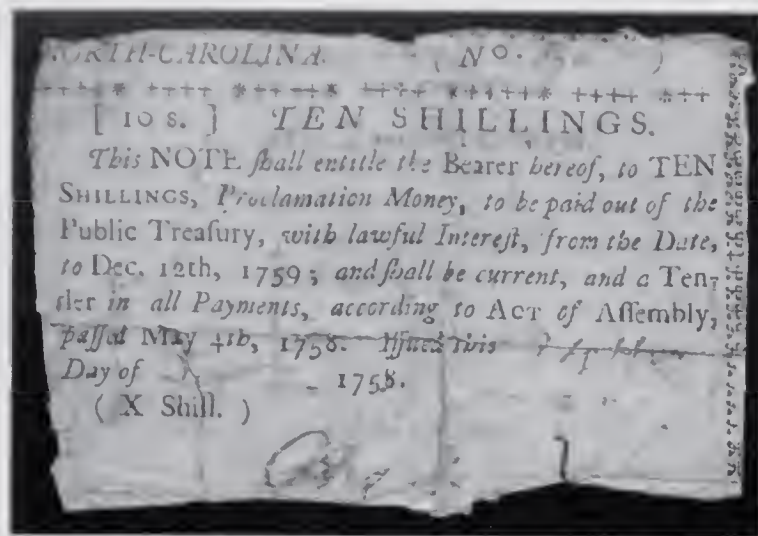 NORTH-CAROLINA. (No. )
[ 10 s. ] TEN SHILLINGS.
This NOTE ſhall entitle the Bearer hereof, to TEN
SHILLINGS, Proclamation Money, to be paid out of the
Public Treaſury, with lawful Intereſt, from the Date,
to Dec. 12th, 1759; and ſhall be current, and a Ten-
der in all Payments, according to ACT of Aſſembly,
paſſed May 4th, 1758. Iſſued this
Day of 1758.
( X Shill. )